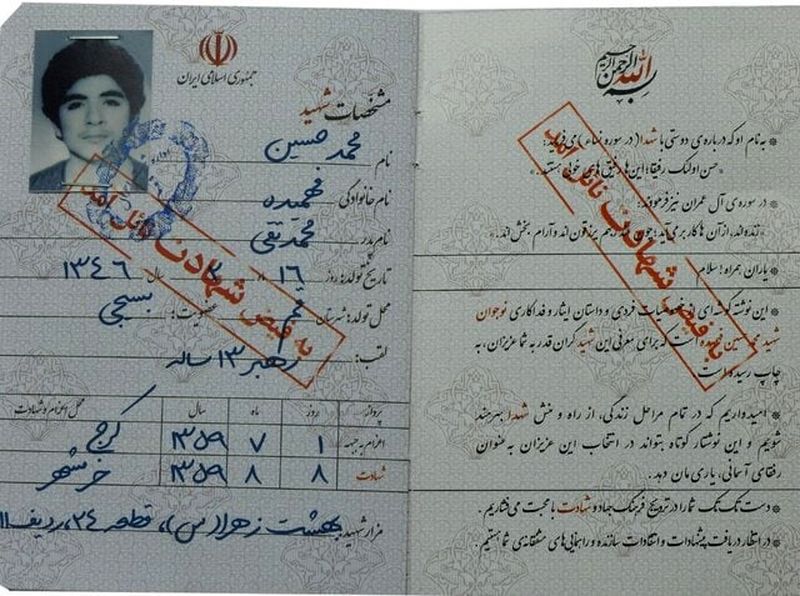 جمهوری اسلامی ایران
مشخصات شهید
نام محمد حسین
نام خانوادگی فهمیده
نام پدر محمد تقی
تاریخ تولد: روز ۱۶ ماه ۲ سال ۱۳۴۶
محل تولد: شهرستان قم عضویت: بسیجی
لقب: رهبر ۱۳ ساله
پرواز روز ماه سال محل اعزام و شهادت
اعزام به جبهه ۱ ۷ ۱۳۵۹ کرج
شهادت ۸ ۸ ۱۳۵۹ خرمشهر
مزار شهید: بهشت زهرا (س)، قطعه ۲۴، ردیف ۱۱
به فیض شهادت نائل آمد
بسم الله الرحمن الرحیم
* به نام او که درباره‌ی دوستی با شهدا (در سوره نساء) می‌فرماید:
«حسن اولئک رفیقا؛ این‌ها رفیق‌های خوبی هستند.»
* در سوره‌ی آل عمران نیز فرمودند:
«زنده‌اند، از آن‌ها کار بر می‌آید؛ چون عند ربهم یرزقون‌اند و آرام بخش‌اند.»
* یاران همراه! سلام
* این نوشته گوشه‌ای از خصوصیات فردی و داستان ایثار و فداکاری نوجوان
شهید محمد حسین فهمیده است که برای معرفی این شهید گران قدر به شما عزیزان، به
چاپ رسیده است
* امیدواریم که در تمام مراحل زندگی، از راه و منش شهدا بهره‌مند
شویم و این نوشتار کوتاه بتواند در انتخاب این عزیزان به عنوان
رفقای آسمانی، یاری مان دهد.
* دست تک تک شما را در ترویج فرهنگ جهاد و شهادت با محبت می‌فشاریم.
* در انتظار دریافت پیشنهادات و انتقادات سازنده و راهنمایی‌های مشفقانه‌ی شما هستیم.
به فیض شهادت نائل آمد